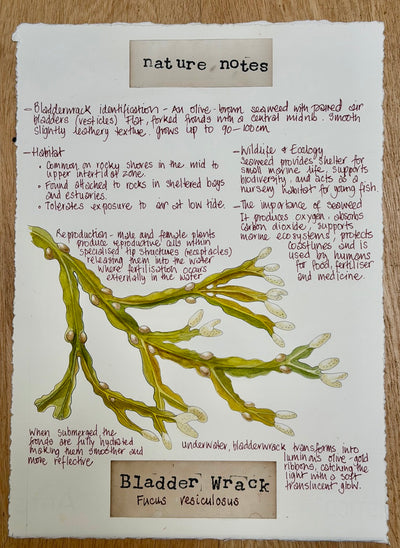 nature notes
- Bladderwrack identification - An olive-brown seaweed with paired air
bladders (vesicles) Flat, forked fronds with a central midrib. Smooth
slightly leathery texture. grows up to 90-100cm
- Habitat
• Common on rocky shores in the mid to
upper intertidal zone.
• Found attached to rocks in sheltered bays
and estuaries.
• Tolerates exposure to air at low tide.
- Wildlife & Ecology
Seaweed provides shelter for
small marine life, supports
biodiversity, and acts as a
nursery habitat for young fish.
- The importance of seaweed
It produces oxygen, absorbs
carbon dioxide, supports
marine ecosystems, protects
coastlines and is
used by humans
for food, fertiliser
and medicine.
Reproduction - male and female plants
produce reproductive cells within
specialised tip structures (receptacles)
releasing them into the water
where fertilisation occurs
externally in the water
When submerged, the
fronds are fully hydrated
making them smoother and
more reflective
underwater, bladderwrack transforms into
luminous olive-gold
ribbons, catching the
light with a soft
translucent glow.
Bladder Wrack
Fucus vesiculosus